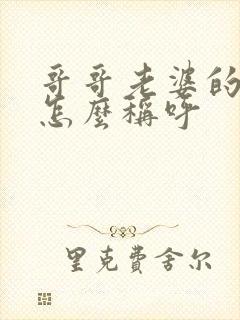 哥哥老婆的
怎麼稱呼
里克費舍尔